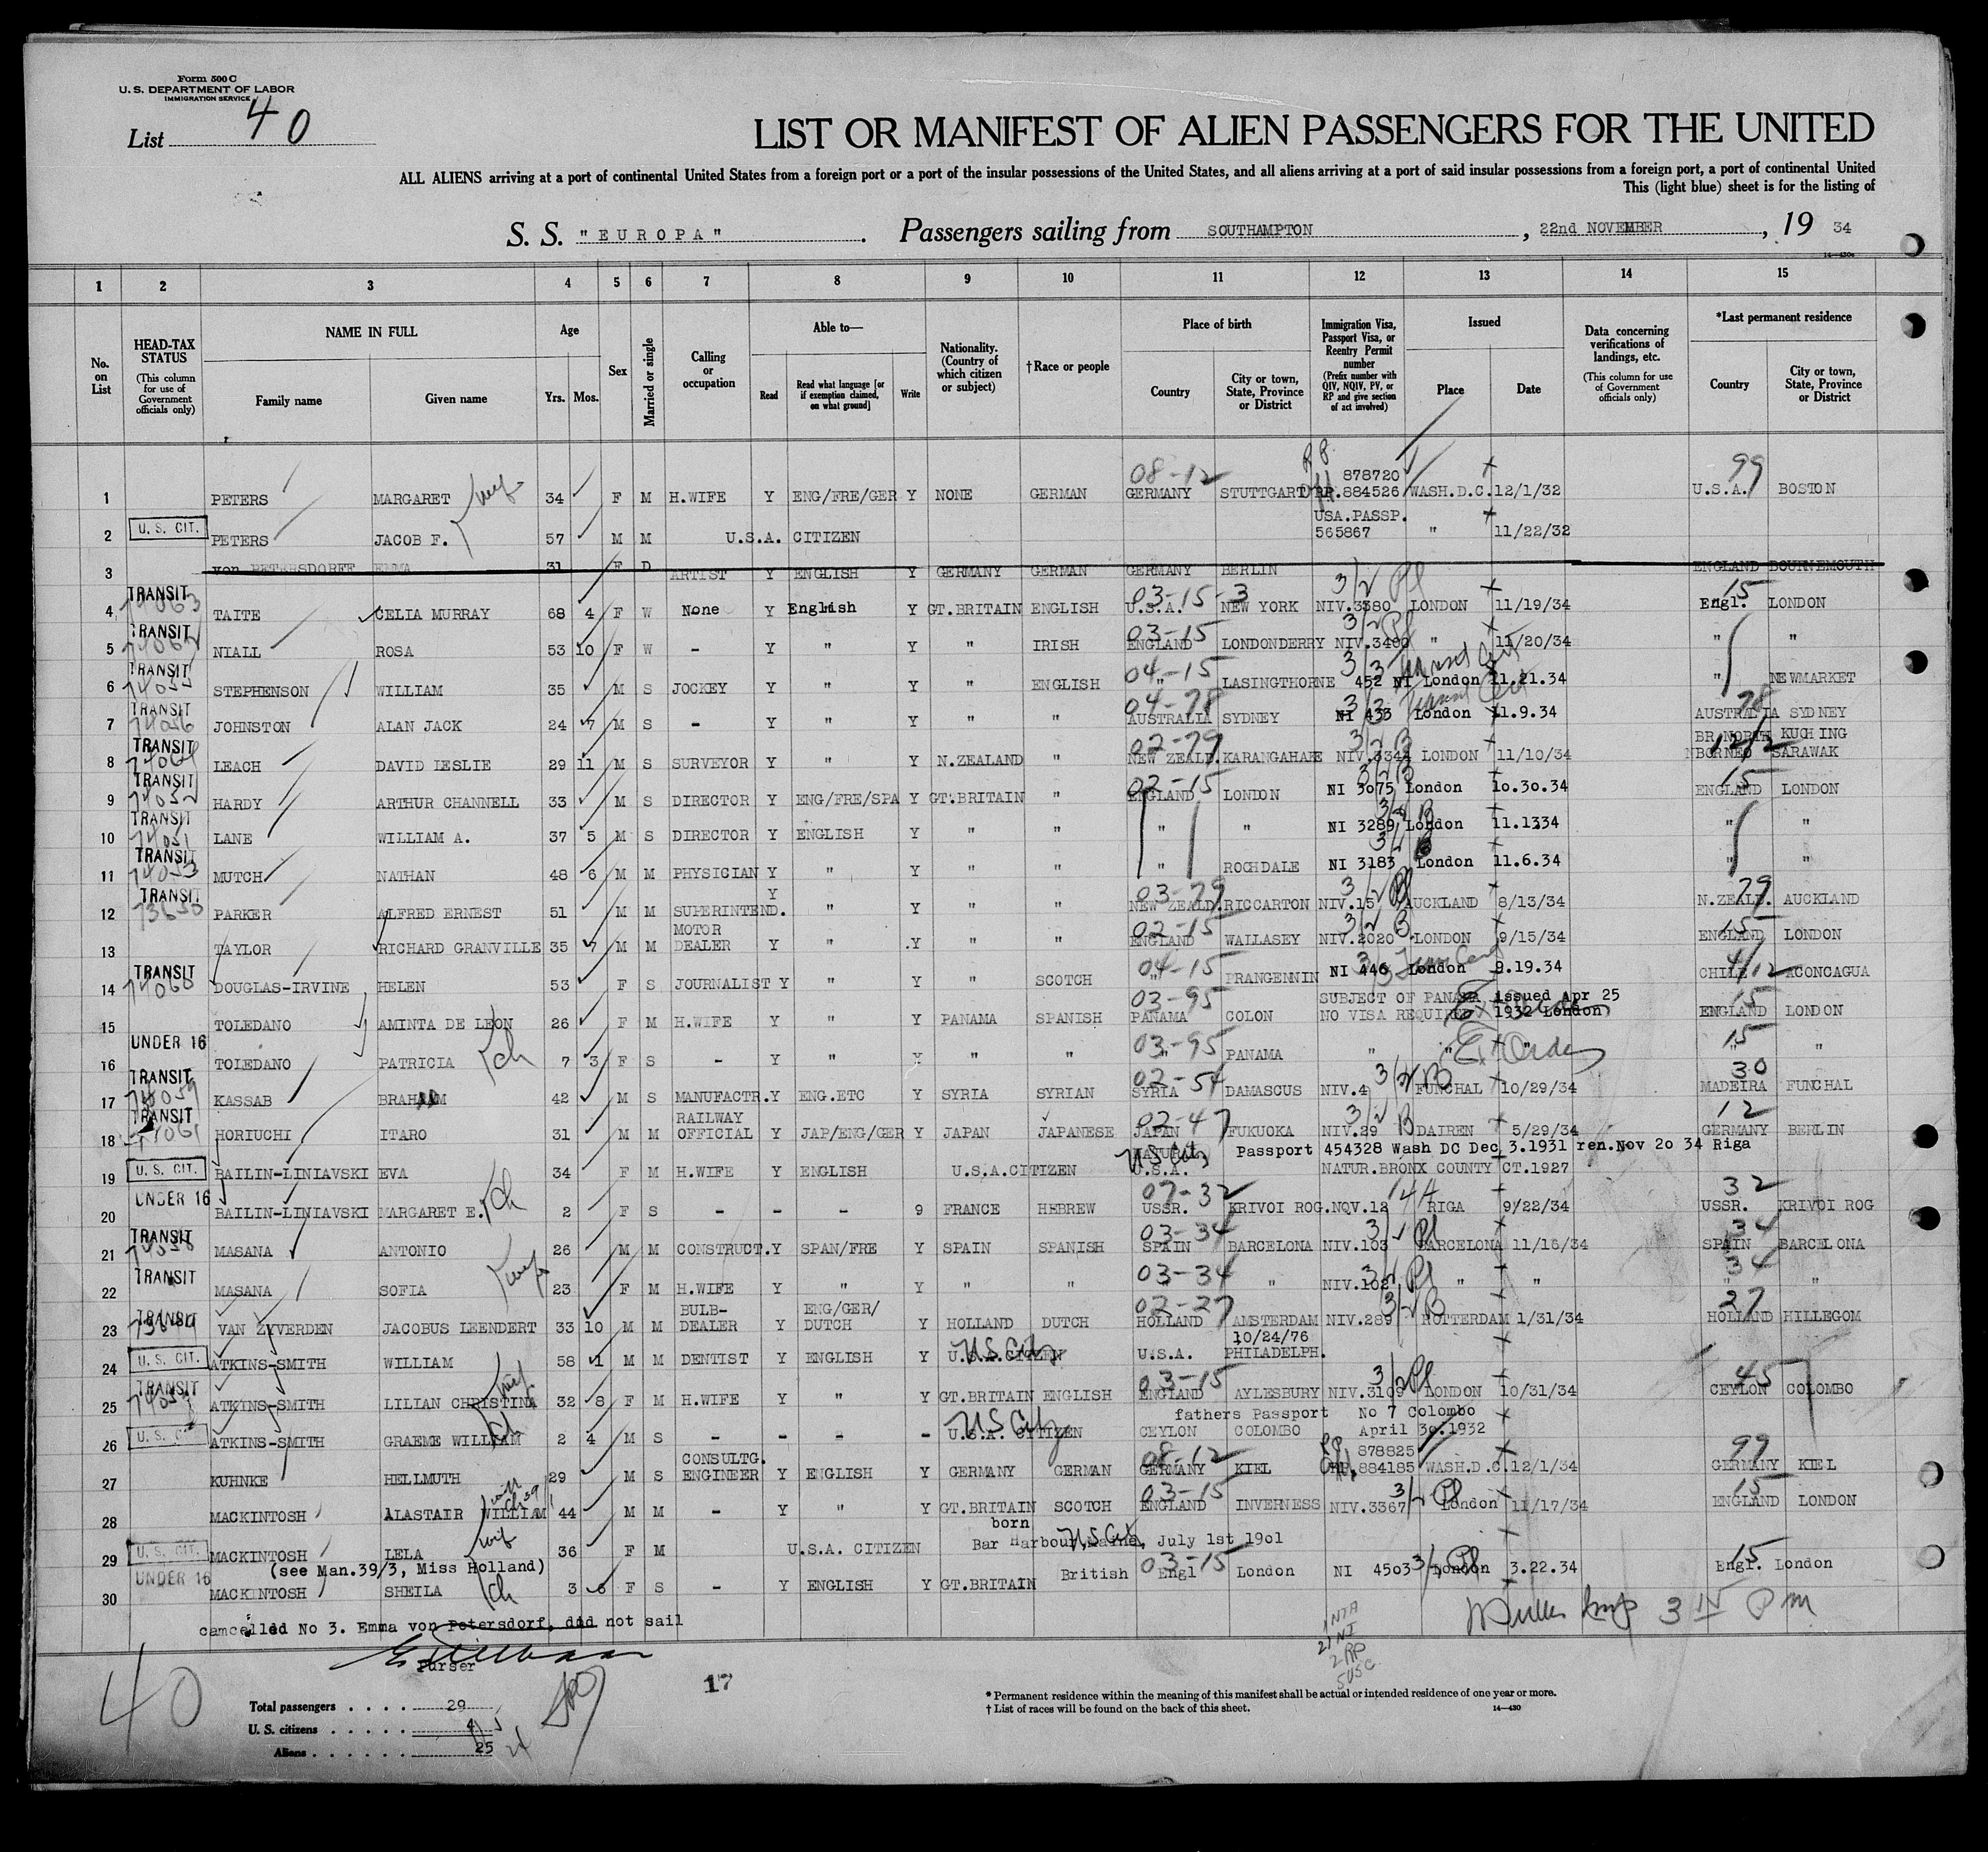 Form 500 C
U. S. DEPARTMENT OF LABOR
IMMIGRATION SERVICE
List 40
LIST OR MANIFEST OF ALIEN PASSENGERS FOR THE UNITED
ALL ALIENS arriving at a port of continental United States from a foreign port or a port of the insular possessions of the United States, and all aliens arriving at a port of said insular possessions from a foreign port, a port of continental United
This (light blue) sheet is for the listing of
S. S. "EUROPA". Passengers sailing from SOUTHAMPTON, 22nd NOVEMBER, 19 34
14—430a
1 2 3 4 5 6 7 8 9 10 11 12 13 14 15
No. on List
HEAD-TAX STATUS (This column for use of Government officials only)
NAME IN FULL Family name Given name
Age Yrs. Mos.
Sex
Married or single
Calling or occupation
Able to— Read Read what language [or if exemption claimed, on what ground] Write
Nationality. (Country of which citizen or subject)
† Race or people
Place of birth Country City or town, State, Province or District
Immigration Visa, Passport Visa, or Reentry Permit number (Prefix number with QIV, NQIV, PV, or RP and give section of act involved)
Issued Place Date
Data concerning verifications of landings, etc. (This column for use of Government officials only)
*Last permanent residence Country City or town, State, Province or District
08-12 878720 99
1 PETERS MARGARET wife 34 F M H.WIFE Y ENG/FRE/GER Y NONE GERMAN GERMANY STUTTGART RP.884526 WASH.D.C. 12/1/32 U.S.A. BOSTON
U. S. CIT. USA.PASSP.
2 PETERS JACOB F. 57 M M U.S.A. CITIZEN 565867 " 11/22/32
3 von PETERSDORFF EMMA 31 F D ARTIST Y ENGLISH Y GERMANY GERMAN GERMANY BERLIN ENGLAND BOURNEMOUTH
TRANSIT 74063 03-15-3 3/2 Pl 15
4 TAITE CELIA MURRAY 68 4 F W None Y English Y GT.BRITAIN ENGLISH U.S.A. NEW YORK NIV.3380 LONDON 11/19/34 Engl. LONDON
TRANSIT 03-15 3/2 Pl
5 NIALL ROSA 53 10 F W - Y " Y " IRISH ENGLAND LONDONDERRY NIV.3400 " 11/20/34 " "
TRANSIT 74055 04-15 3/3 Transit Cert
6 STEPHENSON WILLIAM 35 M S JOCKEY Y " Y " ENGLISH " LASINGTHORNE 452 NI London 11.21.34 " NEWMARKET
TRANSIT 74056 04-78 3/3 Transit Cert 78
7 JOHNSTON ALAN JACK 24 7 M S - Y " Y " " AUSTRALIA SYDNEY NI 433 London 11.9.34 AUSTRALIA SYDNEY
TRANSIT 02-79 3/2 B BR.NORTH KUCHING
8 LEACH DAVID LESLIE 29 11 M S SURVEYOR Y " Y N.ZEALAND " NEW ZEALD. KARANGAHAKE NIV.3344 LONDON 11/10/34 NBORNEO SARAWAK
TRANSIT 74052 02-15 3/2 B 15
9 HARDY ARTHUR CHANNELL 33 M S DIRECTOR Y ENG/FRE/SPA Y GT.BRITAIN " ENGLAND LONDON NI 3075 London 10.30.34 ENGLAND LONDON
TRANSIT 74051 3/2 B
10 LANE WILLIAM A. 37 5 M S DIRECTOR Y ENGLISH Y " " " " NI 3289 London 11.1334 " "
TRANSIT 74053 3/2 B
11 MUTCH NATHAN 48 6 M M PHYSICIAN Y " Y " " " ROCHDALE NI 3183 London 11.6.34 " "
TRANSIT 73650 Y 03-79 3/2 Pl 79
12 PARKER ALFRED ERNEST 51 M M SUPERINTEND. " Y " " NEW ZEALD. RICCARTON NIV.15 AUCKLAND 8/13/34 N.ZEALD. AUCKLAND
MOTOR 02-15 3/2 B 15
13 TAYLOR RICHARD GRANVILLE 35 7 M M DEALER Y " .Y " " ENGLAND WALLASEY NIV.2020 LONDON 9/15/34 ENGLAND LONDON
TRANSIT 74060 04-15 4/12
14 DOUGLAS-IRVINE HELEN 53 F S JOURNALIST Y " Y " SCOTCH " PRANGENNIN NI 446 London 9.19.34 CHILE ACONCAGUA
03-95 SUBJECT OF PANAMA issued Apr 25 15
15 TOLEDANO AMINTA DE LEON 26 F M H.WIFE Y " Y PANAMA SPANISH PANAMA COLON NO VISA REQUIRED 1932 London ENGLAND LONDON
UNDER 16 03-95 Ex Order 15
16 TOLEDANO PATRICIA ch 7 3 F S - Y " Y " " " PANAMA " " " " "
TRANSIT 74059 02-54 3/2 B 30
17 KASSAB BRAHAM 42 M S MANUFACTR. Y ENG.ETC Y SYRIA SYRIAN SYRIA DAMASCUS NIV.4 FUNCHAL 10/29/34 MADEIRA FUNCHAL
TRANSIT 74061 RAILWAY 02-47 3/2 B 12
18 HORIUCHI ITARO 31 M M OFFICIAL Y JAP/ENG/GER Y JAPAN JAPANESE JAPAN FUKUOKA NIV.29 DAIREN 5/29/34 GERMANY BERLIN
U. S. CIT. NATUR. US City Passport 454328 Wash DC Dec 3.1931 ren.Nov 20 34 Riga
19 BAILIN-LINIAVSKI EVA 34 F M H.WIFE Y ENGLISH U.S.A.CITIZEN U.S.A. NATUR.BRONX COUNTY CT.1927
UNDER 16 07-32 4/4 32
20 BAILIN-LINIAVSKI MARGARET E. ch 2 F S - - - 9 FRANCE HEBREW USSR. KRIVOI ROG. NQV.12 RIGA 9/22/34 USSR. KRIVOI ROG
TRANSIT 03-34 3/2 Pl 34
21 MASANA ANTONIO 26 M M CONSTRUCT. Y SPAN/FRE Y SPAIN SPANISH SPAIN BARCELONA NIV.103 BARCELONA 11/16/34 SPAIN BARCELONA
TRANSIT 03-34 3/2 Pl 34
22 MASANA SOFIA wife 23 F M H.WIFE Y " Y " " " " NIV.102 " " " "
TRANSIT BULB- ENG/GER/ 02-27 3/2 B 27
23 VAN ZYVERDEN JACOBUS LEENDERT 33 10 M M DEALER Y DUTCH Y HOLLAND DUTCH HOLLAND AMSTERDAM NIV.289 ROTTERDAM 1/31/34 HOLLAND HILLEGOM
U. S. CIT. US City 10/24/76
24 ATKINS-SMITH WILLIAM 58 1 M M DENTIST Y ENGLISH Y U.S.A.CITIZEN U.S.A. PHILADELPH.
TRANSIT wife 03-15 3/2 Pl 45
25 ATKINS-SMITH LILIAN CHRISTINA 32 8 F M H.WIFE Y " Y GT.BRITAIN ENGLISH ENGLAND AYLESBURY NIV.3109 LONDON 10/31/34 CEYLON COLOMBO
U. S. CIT. ch US City fathers Passport No 7 Colombo
26 ATKINS-SMITH GRAEME WILLIAM 2 4 M S - - - - U.S.A. CITIZEN CEYLON COLOMBO April 30.1932
CONSULTG. 08-12 878825 99
27 KUHNKE HELLMUTH 29 M S ENGINEER Y ENGLISH Y GERMANY GERMAN GERMANY KIEL RP.884185 WASH.D.C. 12/1/34 GERMANY KIEL
03-15 3/2 Pl 15
28 MACKINTOSH ALASTAIR WILLIAM 44 M M - Y " Y GT.BRITAIN SCOTCH ENGLAND INVERNESS NIV.3367 London 11/17/34 ENGLAND LONDON
U. S. CIT. wife born
29 MACKINTOSH LELA 36 F M U.S.A. CITIZEN Bar Harbour, Maine, July 1st 1901 US City
UNDER 16 (see Man.39/3, Miss Holland) British 03-15 Engl London NI 4503 3/2 Pl London 3.22.34 15 Engl. London
30 MACKINTOSH SHEILA ch 3 6 F S - Y ENGLISH Y GT.BRITAIN
cancelled No 3. Emma von Petersdorf, did not sail
Purser
40
17
1 NTA
21 NI
2 RP
5 USC
Total passengers . . . . 29
U. S. citizens . . . . . 4 5
Aliens . . . . . . 25 24
* Permanent residence within the meaning of this manifest shall be actual or intended residence of one year or more.
† List of races will be found on the back of this sheet.
14—430